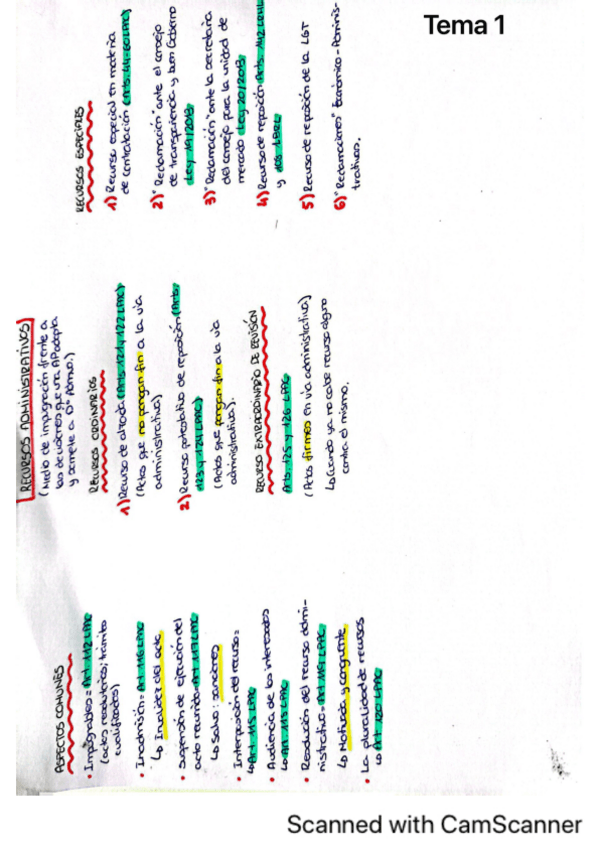 Tema 1
RECURSOS ADMINISTRATIVOS
(Medio de impugnación frente a
las decisiones que una AP adopta
y somete a Dº Admvo.)
ASPECTOS COMUNES
• Impugnables = Art. 112 LPAC
(actos resolutorios; trámite
cualificados)
• Inadmisión = Art 116 LPAC
↳ Invalidez del acto
• Suspensión de ejecución del
acto recurrido = Art 117 LPAC
↳ Salvo: sanciones
• Interposición del recurso:
↳ Art. 115 LPAC
• Audiencia de los interesados
↳ Art. 118 LPAC
• Resolución del recurso admi-
nistrativo = Art 119 LPAC
↳ Motivada y congruente
• La pluralidad de recursos
↳ Art 120 LPAC
RECURSOS ORDINARIOS
1) Recurso de alzada (Arts 121 y 122 LPAC)
(Actos que no pongan fin a la vía
administrativa)
2) Recurso potestativo de reposición (Arts.
123 y 124 LPAC)
(Actos que pongan fin a la vía
administrativa).
RECURSO EXTRAORDINARIO DE REVISIÓN
Arts. 125 y 126 LPAC
(Actos firmes en vía administrativa)
↳ Cuando ya no cabe recurso alguno
contra el mismo.
RECURSOS ESPECIALES
1) Recurso especial en materia
de contratación (Arts. 44-60 LPAC)
2) "Reclamación" ante el consejo
de transparencia y buen Gobierno
Ley 19/2013
3) "Reclamación" ante la secretaría
del consejo para la unidad de
mercado Ley 20/2013
4) Recurso de reposición Arts. 14.2 LRHL
y 108 LBRL
5) Recurso de reposición de la LGT
6) "Reclamaciones" Económico-Adminis-
trativas.
Scanned with CamScanner